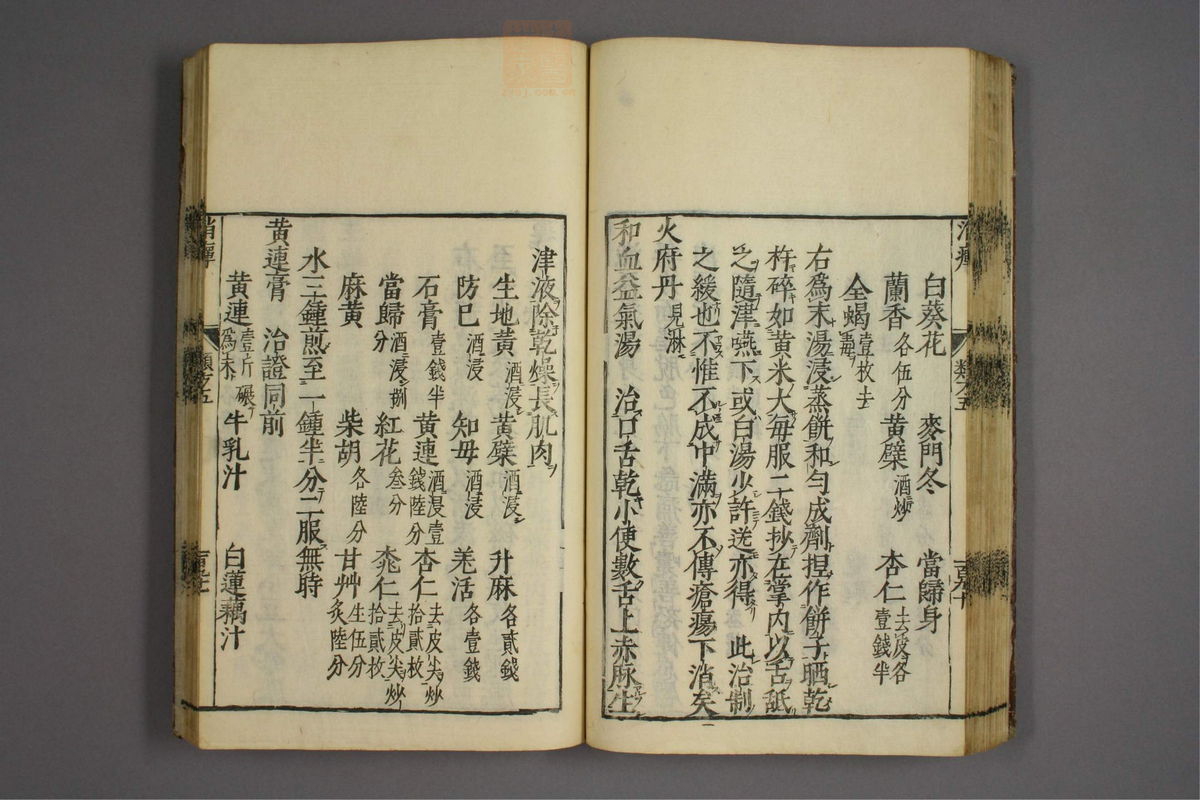 白葵花 麥門冬 當歸身
蘭香各伍分 黄檗酒炒 杏仁去皮各壹錢半
全蝎壹枚去毒
右爲末湯浸蒸餅和勻成劑捏作餅子晒乾
杵碎如黄米大每服二錢抄在掌内以舌舐
之隨津嚥下或白湯少許送亦得此治制
之緩也不惟不成中滿亦不傳瘡瘍下消矣
火府丹見淋
和血益氣湯 治口舌乾小便數舌上赤脉生
津液除乾燥長肌肉
生地黄酒浸 黄檗酒浸 升麻各貳錢
防巳酒浸 知毋酒浸 羌活各壹錢
石膏壹錢半 黄連酒浸壹錢陸分 杏仁去皮尖炒拾貳枚
當歸酒浸捌分 紅花叁分 桃仁去皮尖炒拾貳枚
麻黄 柴胡各陸分 甘艸生伍分炙陸分
水三鍾煎至一鍾半分二服無時
黄連膏 治證同前
黄連壹斤碾爲末 牛乳汁 白蓮藕汁